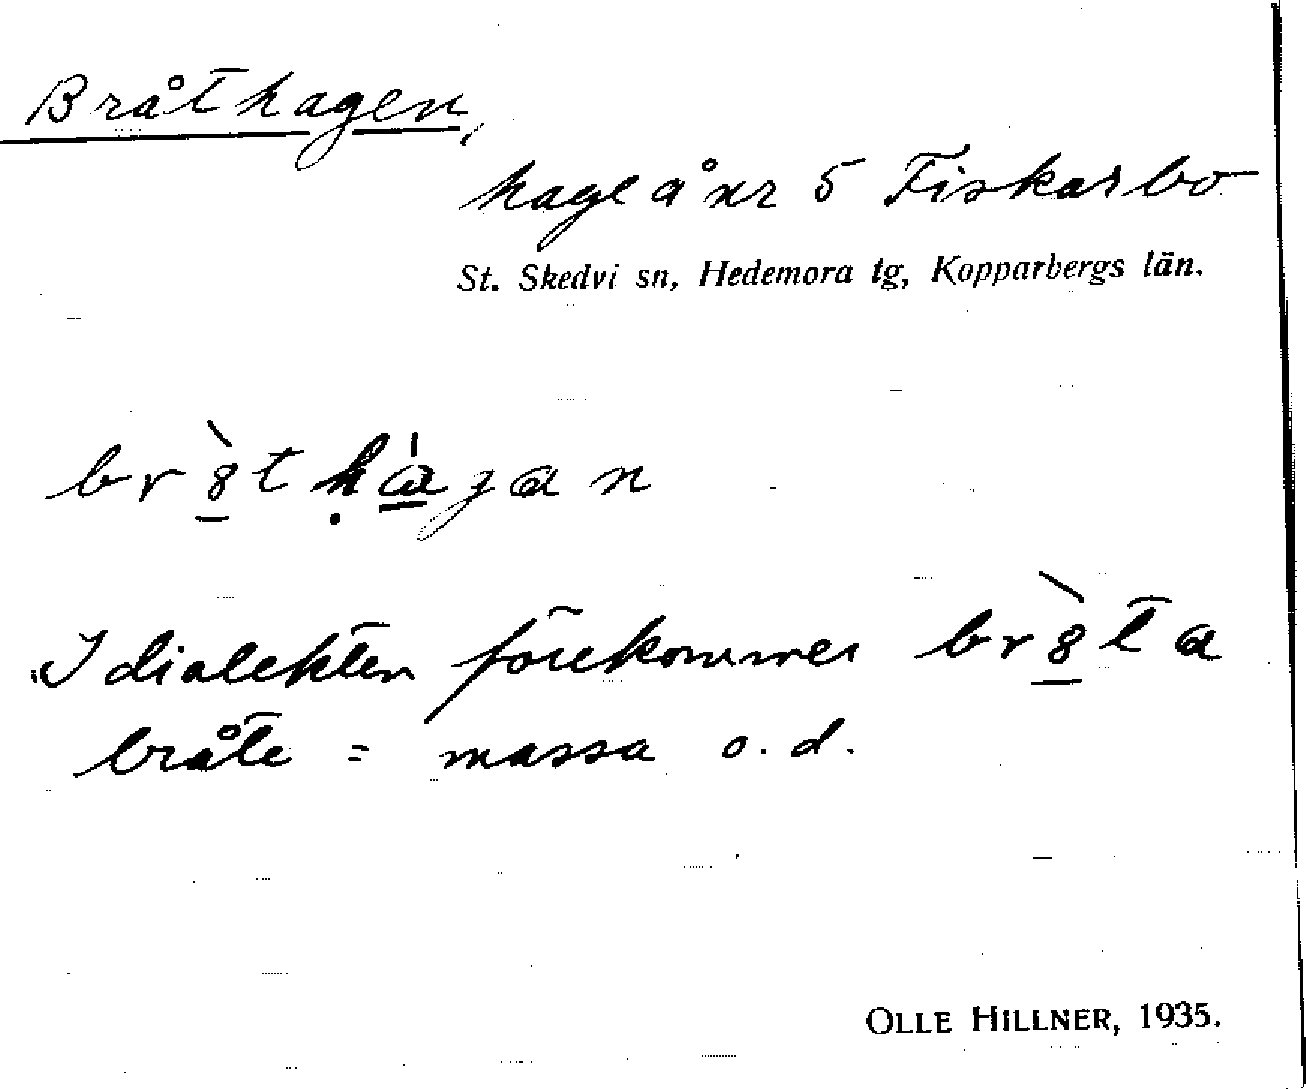 Bråthagen,
hage å nr 5 Fiskarbo
St. Skedvi sn, Hedemora tg, Kopparbergs län.
br8̲̀t ḥa̲̍gan
I dialekten förekommer br8̲̀ta
bråte = massa o.d.
OLLE HILLNER, 1935.